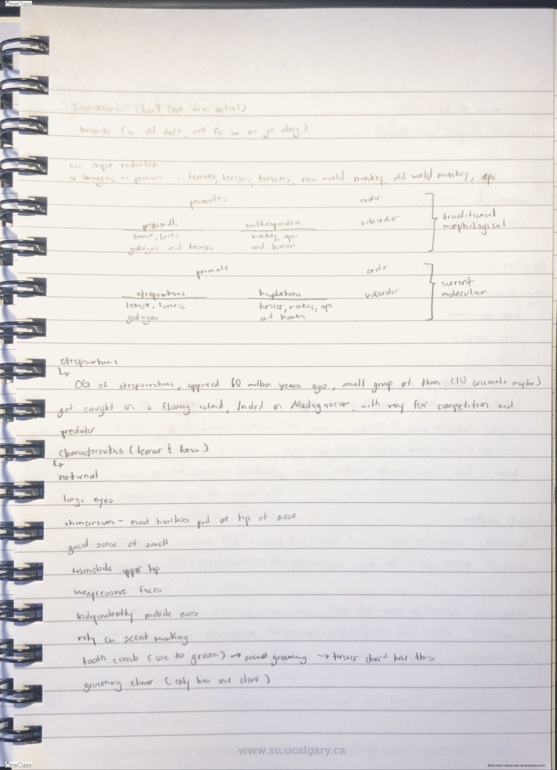 OneClass
Taxonomic chart (not
six major radiation
or lineages of primate : lemurs, lorises, tarsiers, new world monkey, old world monkey, ape
primates order
prosimii anthropoidea suborder
lemur, loris monkey, ape
galagos and tarsiers and human
traditional
morphological
primate order
strepsirhini haplorhini suborder
lemur, loris, tarsier, monkey, ape
galagos and human
current
molecular
strepsirhini
OG of strepsirrhini, appeared 60 million years ago, small group of them (10 animals maybe)
got caught on a floating island, landed in Madagascar, with very few competition and
predator
characteristics (lemur & loris)
nocturnal
large eyes
rhinarium - moist hairless pad at tip of nose
good sense of smell
immobile upper lip
inexpressive faces
independently mobile ears
rely on scent marking
tooth comb (use to groom) → social grooming → tarsier don't have this
grooming claw (only has one claw)
www.su.ucalgary.ca
OneClass
find more resources at oneclass.com